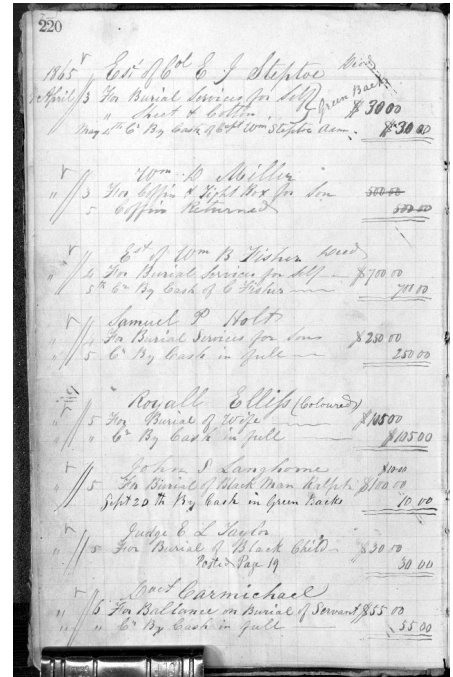 220
1865 Est of Col E J Steptoe Decd
April 3 For Burial Services for Self Green Back
" Sheet & Cotton $30 00
May 4th Cr By Cash of Capt Wm Steptoe Adm. $30 00
Wm D Miller
" 3 For Coffin & Tight Box for Son 500 00
5 Coffin Returned 500 00
Est of Wm B Fisher Decd
" 4 For Burial Services for Self $700 00
" 5th Cr By Cash of C Fisher 700 00
Samuel P Holt
" 4 For Burial Services for Sons $250 00
" 5 Cr By Cash in full 250 00
Royall Elliss (Coloured)
" 5 For Burial of Wife $105 00
" " Cr By Cash in full $105 00
John S Langhorne $10 00
" 5 For Burial of Black Man $100 00
Sept 20th By Cash in Green Backs 10 00
Judge E L Taylor
" 5 For Burial of Black Child $30 00
Posted Page 19 30 00
Carmichael
" 6 For Ballance on Burial of Servant $55 00
" " Cr By Cash in full 55 00